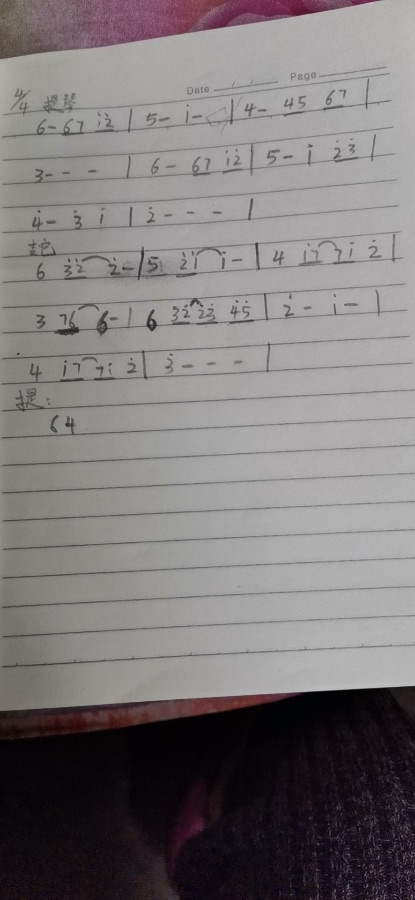 Date Page
4/4 提琴
6- 67 i̇2̇ | 5- i̇- | 4- 45 67 |
3- - - | 6- 67 i̇2̇ | 5- i̇ 2̇3̇ |
4̇- 3̇ i̇ | 2̇ - - - |
6 3̇2̇ 2̇- | 5 2̇i̇ i̇- | 4 i̇7 7i̇ 2̇ |
3 76 6- | 6 3̇2̇ 2̇3̇ 4̇5̇ | 2̇ - i̇ - |
4 i̇7 7i̇ 2̇ | 3̇ - - - |
提:
64